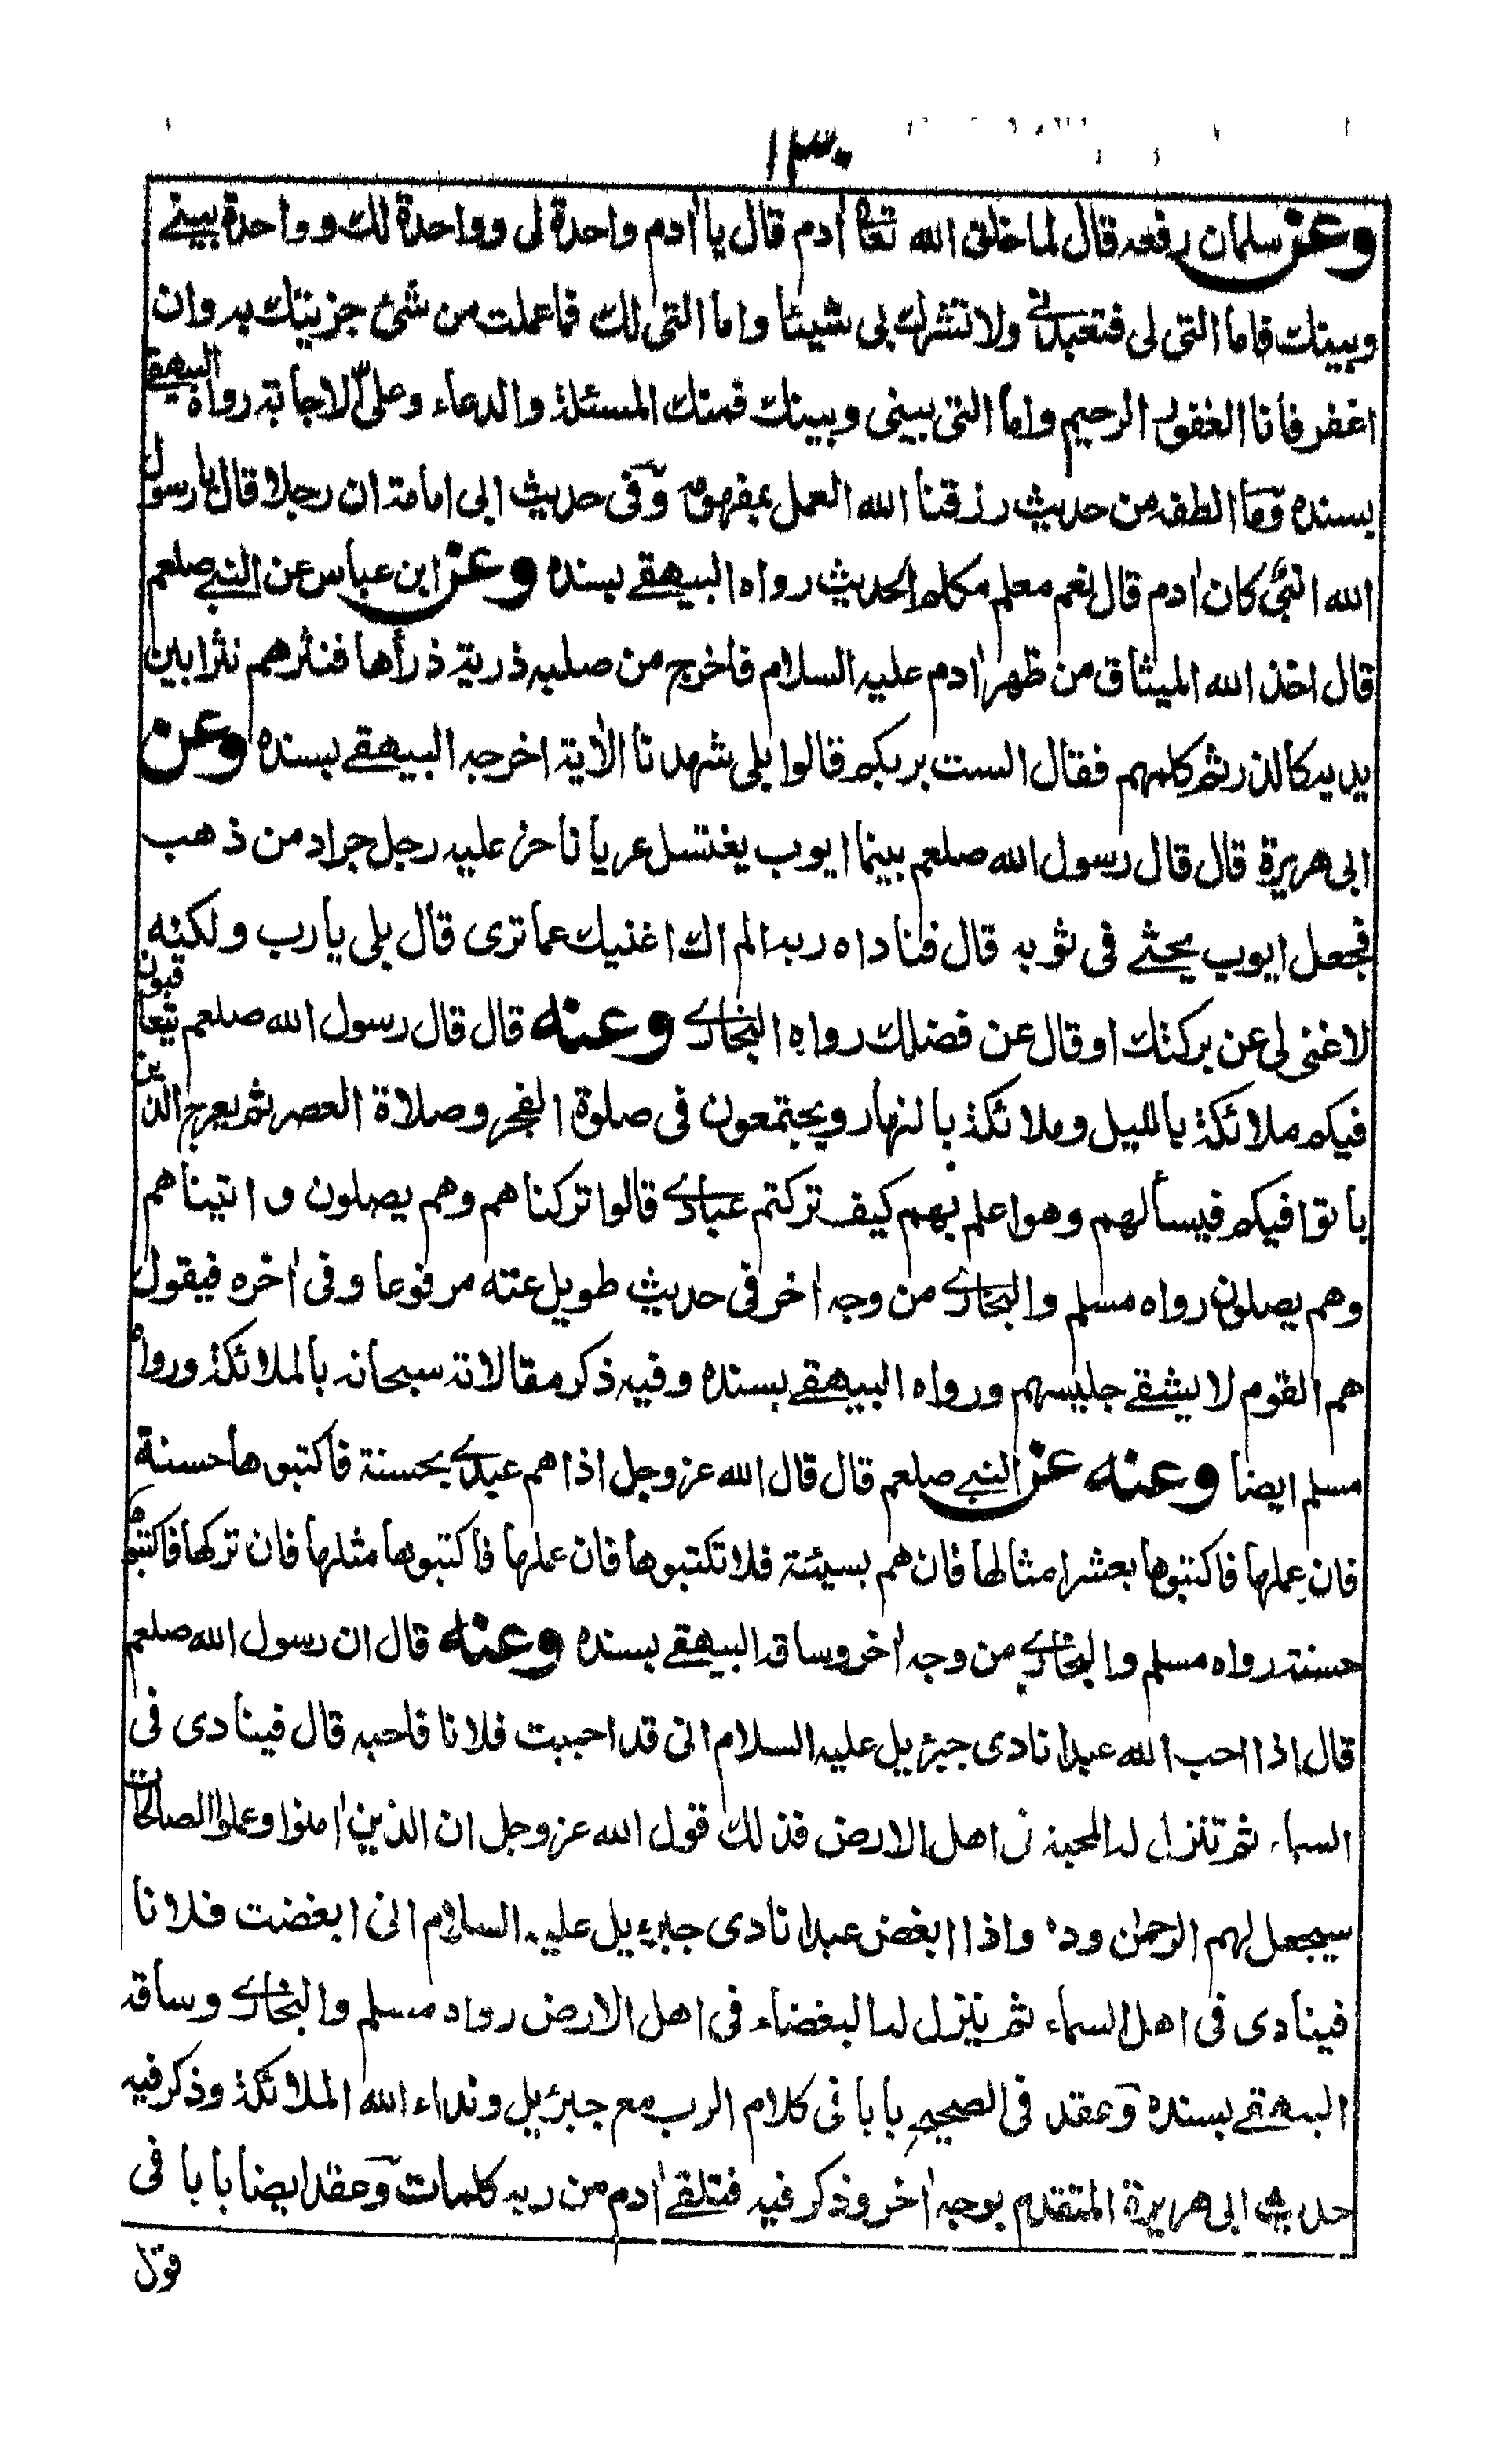 ١٣٠
وعن سلمان رفعه قال لما خلق الله تعالى اٰدم قال يا اٰدم واحدة لى وواحدة لك وواحدة بينے
وبينك فاما التى لى فتعبدنى ولا تشرك بى شيئا واما التى لك فما عملت من شئ جزيتك به وان
اغفر فانا الغفور الرحيم واما التى بينى وبينك فمنك المسئلة والدعاء وعلىّ الاجابة رواه البيهقے
بسنده وما الطفه من حديث رزقنا الله العمل بمفهومه وفى حديث ابى امامة ان رجلا قال يا رسول
الله انبىّ كان اٰدم قال نعم معلم مكلم الحديث رواه البيهقے بسنده وعن ابن عباس عن النبے صلعم
قال اخذ الله الميثاق من ظهر اٰدم عليه السلام فاخرج من صلبه ذرية ذرأها فنثرهم نثرا بين
يديه كالذر ثم كلمهم فقال الست بربكم قالوا بلى شهدنا الاٰية اخرجه البيهقے بسنده وعن
ابى هريرة قال قال رسول الله صلعم بينما ايوب يغتسل عريانا خر عليه رجل جراد من ذهب
فجعل ايوب يحثے فى ثوبه قال فناداه ربه الم اك اغنيك عما ترى قال بلى يا رب ولكنه
لا غنى لى عن بركتك او قال عن فضلك رواه البخارے وعنه قال قال رسول الله صلعم يتعاقبون
فيكم ملائكة بالليل وملائكة بالنهار ويجتمعون فى صلوة الفجر وصلاة العصر ثم يعرج الذين
باتوا فيكم فيسألهم وهو اعلم بهم كيف تركتم عبادے قالوا تركناهم وهم يصلون واتيناهم
وهم يصلون رواه مسلم والبخارے من وجه اٰخر فى حديث طويل عنه مرفوعا وفى اٰخره فيقول
هم القوم لا يشقے جليسهم ورواه البيهقے بسنده وفيه ذكر مقالاته سبحانه بالملائكة ورواه
مسلم ايضا وعنه عن النبے صلعم قال قال الله عز وجل اذا هم عبدے بحسنة فاكتبوها حسنة
فان عملها فاكتبوها بعشر امثالها فان هم بسيئة فلا تكتبوها فان عملها فاكتبوها مثلها فان تركها فاكتبوها
حسنة رواه مسلم والبخارے من وجه اٰخر وساقه البيهقے بسنده وعنه قال ان رسول الله صلعم
قال اذا احب الله عبدا نادى جبرئيل عليه السلام انى قد احببت فلانا فاحبه قال فينادى فى
السماء ثم تنزل له المحبة فى اهل الارض فذلك قول الله عز وجل ان الذين اٰمنوا وعملوا الصالحات
سيجعل لهم الرحمٰن ودا واذا ابغض عبدا نادى جبرءيل عليه السلام انى ابغضت فلانا
فينادى فى اهل السماء ثم ينزل له البغضاء فى اهل الارض رواه مسلم والبخارے وساقه
البيهقے بسنده وعقد فى الصحيح بابا فى كلام الرب مع جبرئيل ونداء الله الملائكة وذكر فيه
حديث ابى هريرة المتقدم بوجه اٰخر وذكر فيه فتلقے اٰدم من ربه كلمات وعقد ايضا بابا فى
قول